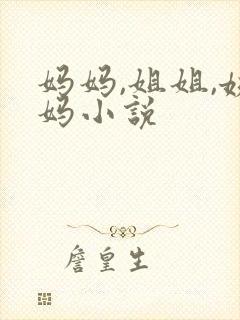 妈妈,姐姐,
妈小说
詹皇生